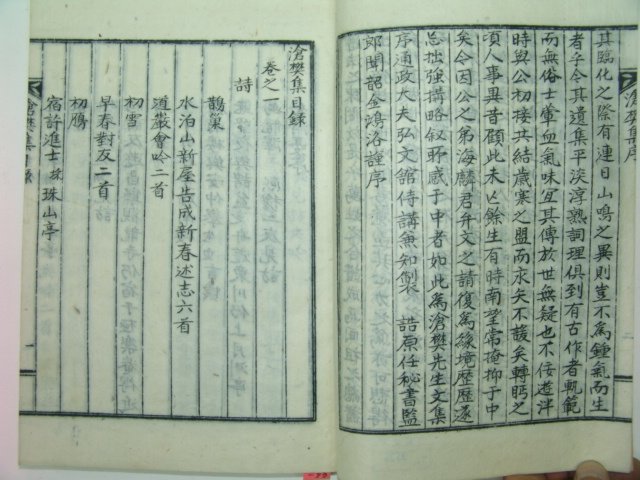 滄樊集序
其臨化之際有連日山鳴之異則豈不為鍾氣而生
者乎今其遺集平淡淳熟詞理俱到有古作者軌範
而無俗士葷血氣味宜其傳放世無疑也不佞遊泮
時與公初接共結歲寒之盟而永矢不諼矣轉眄之
頃人事異昔顧此未亾餘生有時南望常掩抑于中
矣今因公之弟海麟君弁文之請復為緣境歷歷遂
忘拙強搆略叙所感于中者如此為滄樊先生文集
序通政大夫弘文館侍講兼知製 誥原任秘書監
郎聞韶金鴻洛謹序
滄樊集目錄
卷之一
詩
鵲巢
水泊山新屋告成新春述志六首
道巖會吟二首
初雪
早春對友二首
初鴈
宿許進士 珠山亭
滄樊集目錄